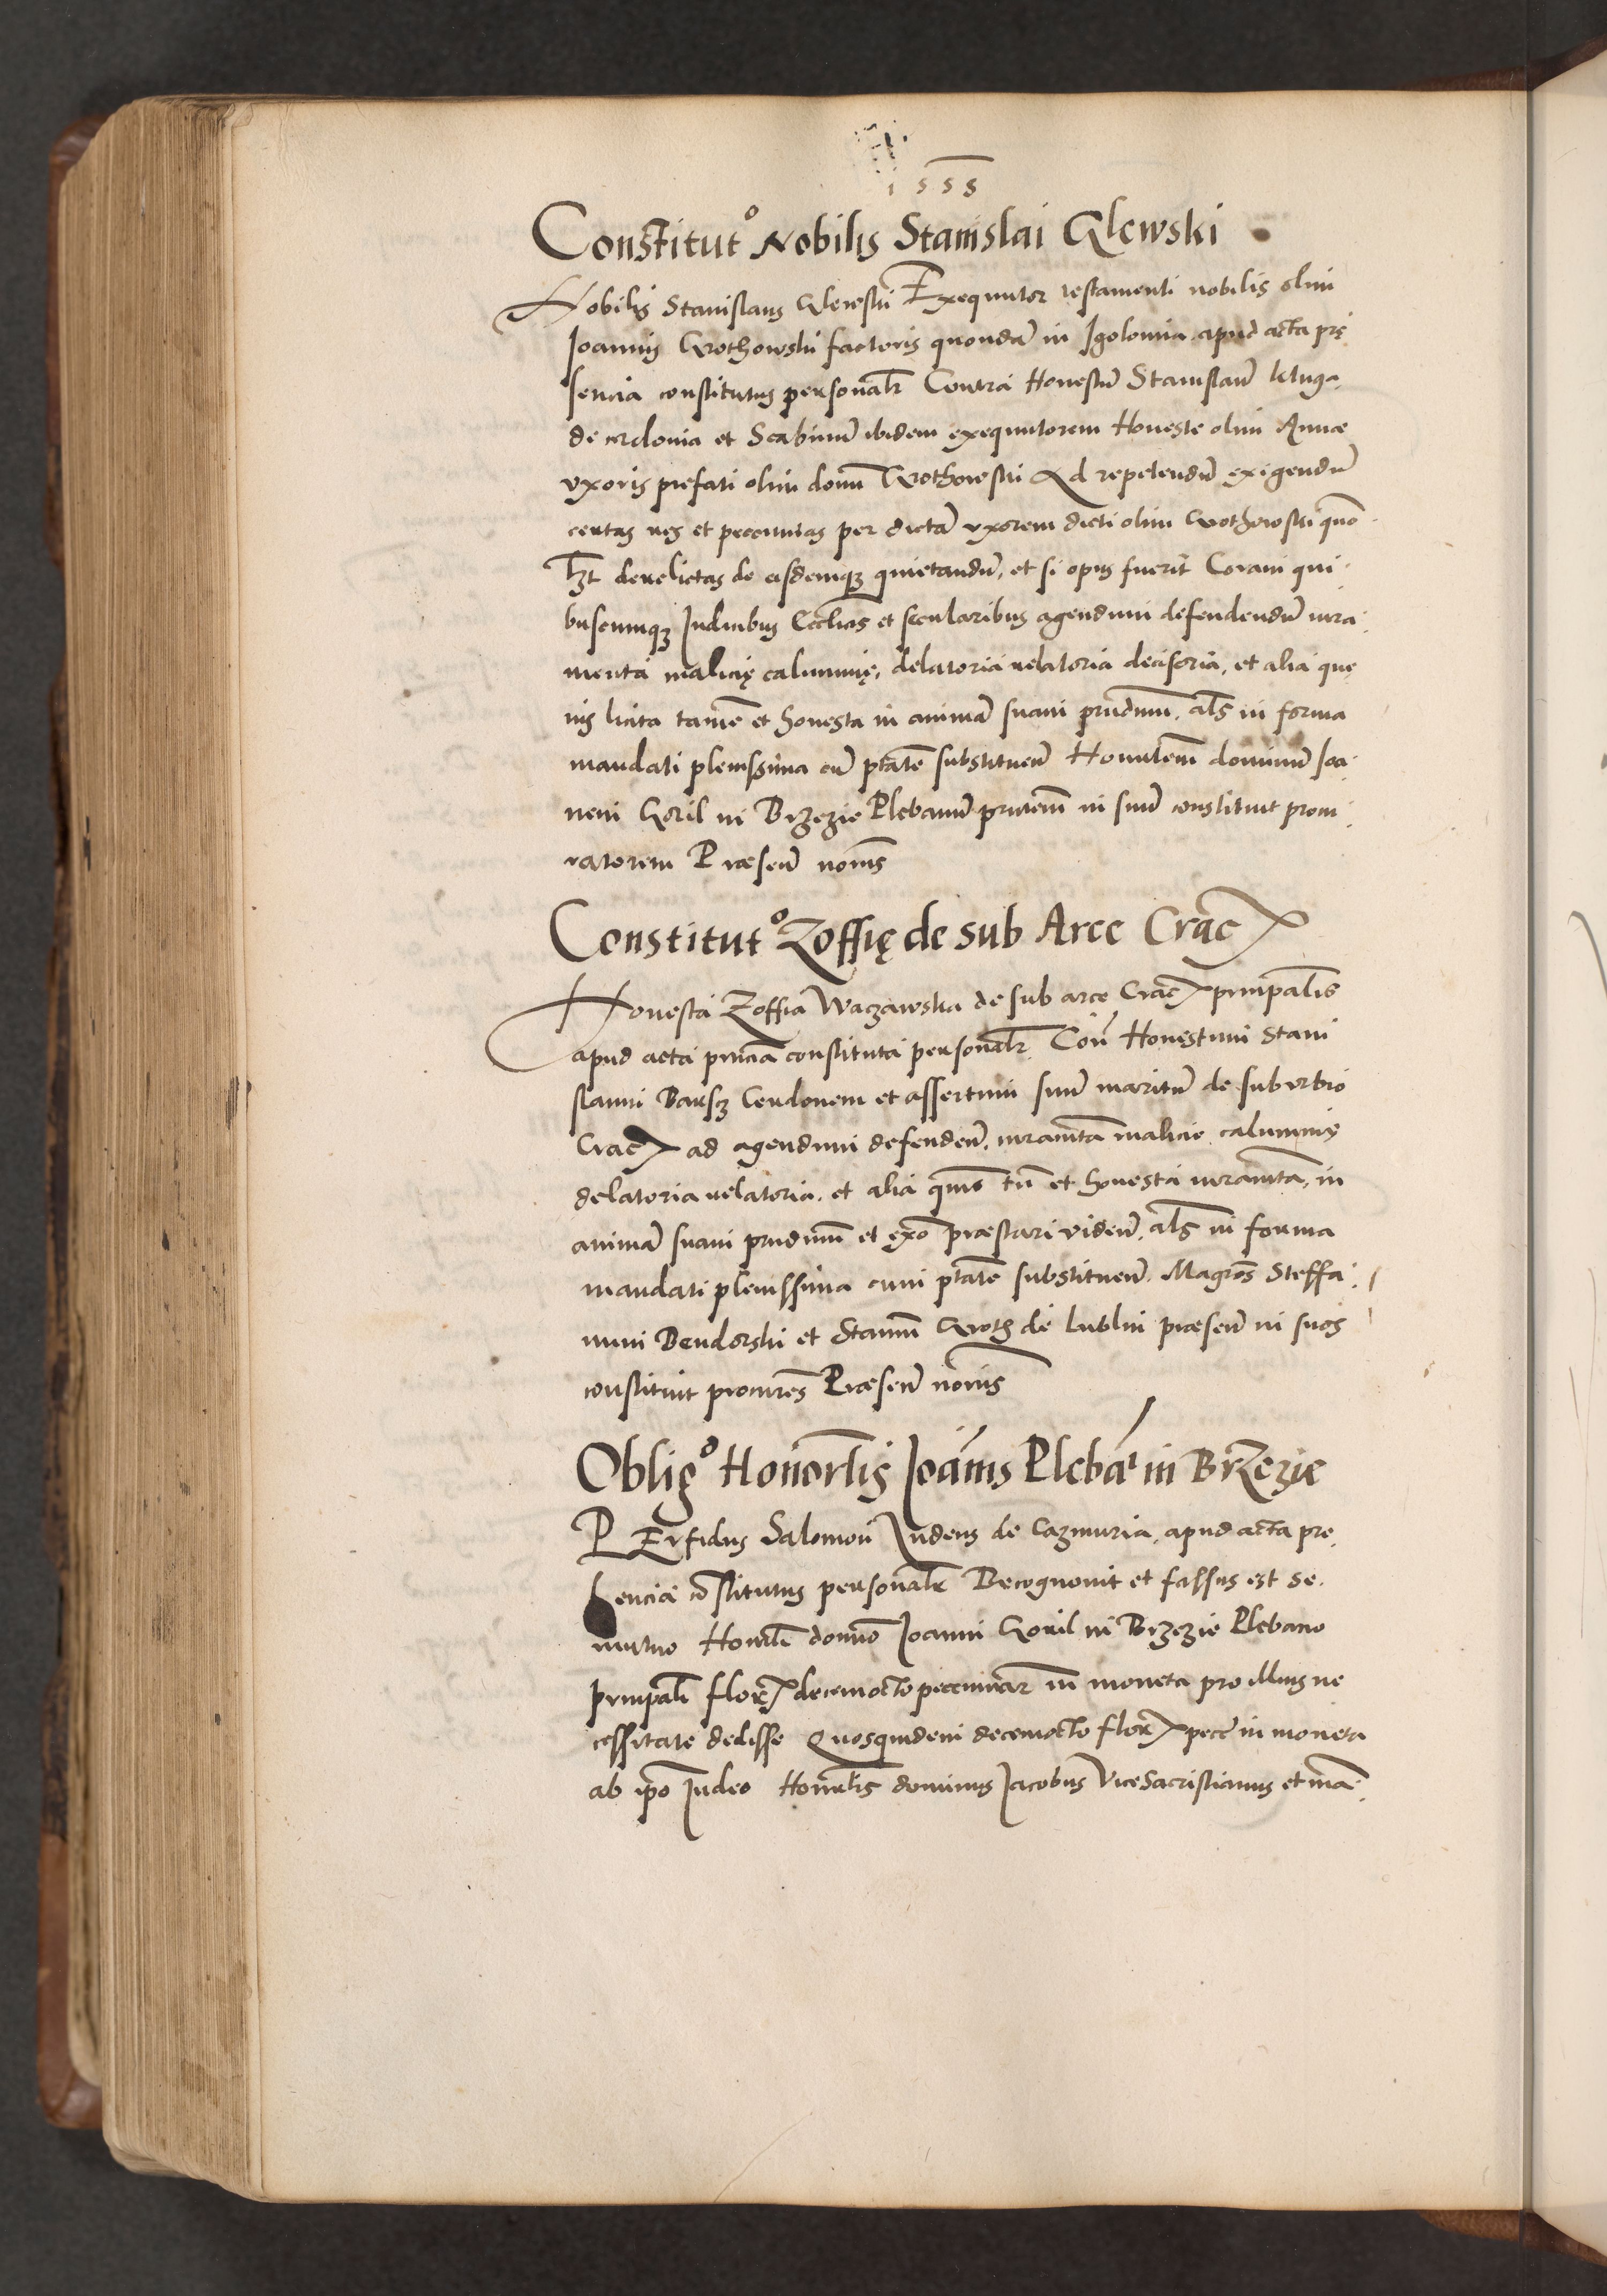 1555
Constitutº Nobilis Stanislai Glewski
Nobilis Stanislaus Glewski Exequutor testamenti nobilis olim
Joannis Grothowski factoris quondā in Igolomia apud acta prę
sencia constitutus personalr̄ Contra Honestū Stanislaū Kluga
de et Scabinū ibidem exequutorem Honeste olim Annæ
vxoris prefati olim domī Grothowski Ad repetendū exigendū
certas res et peccunias per dictā vxorem dicti olim Grothowski quō
lꝫt derelictas de eisdemqꝫ quietandū, et si opus fuerit Coram qui
buscunqꝫ Judicibus Ecclicis et secularibus agendum defendendū iura
menta malicię calumnię, delatoria relatoria decisoria, et alia que
uis licita tamē et honesta in animā suam prūdum̄, als in forma
mandati plenissima cū ptāte substituen̄ Honorlem̄ dominū Joa
nem Goril in Brzezie Plebanū pn̄tem̄ in suū constituit procu
ratorem Præsen̄ nōtis
Constitutº Zoffię de sub Arce Crac̄
Honesta Zoffia Waczawska de sub arce Crac̄ prīnpalis
apud acta pn̄cia constituta personalr̄ Con̄ Honestum Stani
slaum Barsz Cerdonem et assertum suū maritū de suburbio
Crac̄ ad agendum defenden̄, iuramta malicie calumnię
delatoria relatoria, et alia qūis tn̄ et honesta iuramta, in
animā suam prūdum̄ et exō præstari viden̄, als in forma
mandati plenissima cum ptāte substituen̄ Magros Steffa
num Bendorski et Stanm̄ Groth de Lublin præsen̄ in suos
constituit procures Præsen̄ nōtis
Obligº Honorlis Joānis Plebāi in Brzezie
PErfidus Salomon Judeus de Cazmiria, apud acta pre
sencia cōstitutus personalr̄ Recognouit et fassus est se
mutuo Honorli domīo Joanni Goril in Brzezie Plebano
prīnpali flor̄ decemocto peccuniar̄ in moneta pro illius ne
cessitate dedisse Quosquidem decemocto flor̄ pecc̄ in moneta
ab ipō Judeo Honorlis dominus Jacobus ViceSacristianus et mā